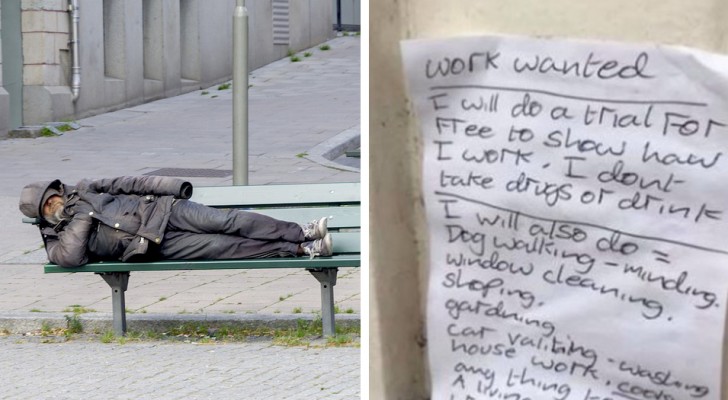 work wanted
I will do a trial FOR
Free to show how
I work. I dont
take drugs or drink
I will also do =
Dog walking - minding.
window cleaning.
shoping.
gardning
car valiting - washing
house work.
any thing
A living